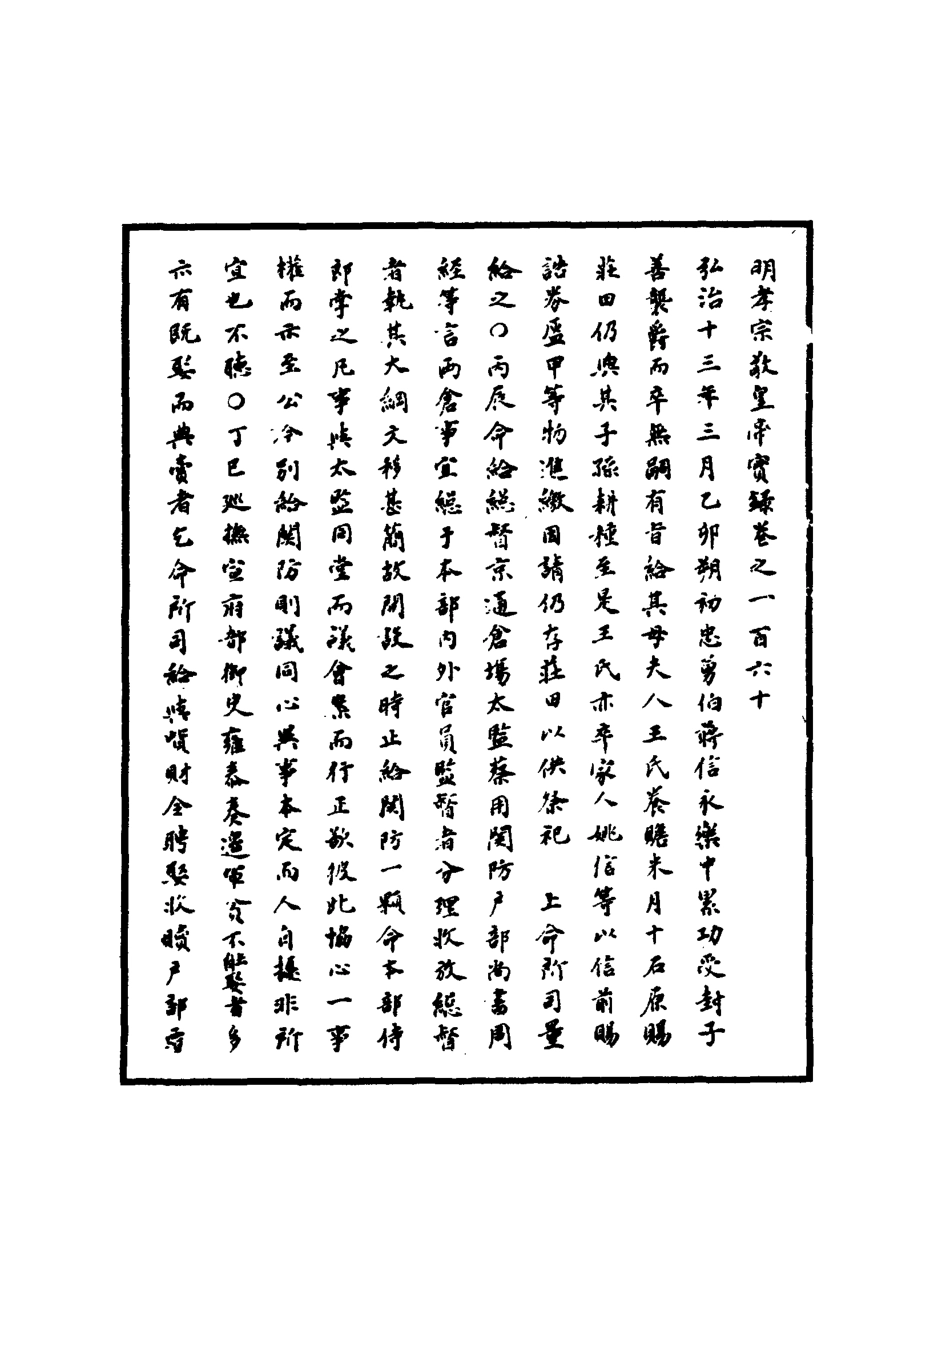 明孝宗敬皇帝實錄卷之一百六十
弘治十三年三月乙卯朔初忠勇伯蔣信永樂中累功受封子
善襲爵而卒無嗣有旨給其母夫人王氏養贍米月十石原賜
莊田仍與其子孫耕種至是王氏亦卒家人姚信等以信前賜
誥券盔甲等物進繳因請仍存莊田以供祭祀 上命所司量
給之〇丙辰命給總督京通倉場太監蔡用関防户部尚書周
経等言兩倉事宜總于本部内外官員監督者分理收放總督
者執其大綱文移甚簡故開設之時止給関防一顆命本部侍
郎掌之凡事與太監同堂而議會案而行正欲彼此協心一事
權而示至公今别給関防則議同心異事本定而人自擾非所
宜也不聽〇丁巳巡撫宣府都御史雍泰奏邊軍貧不能娶者多
亦有既娶而典賣者乞命所司給與貲財全聘娶收贖户部言